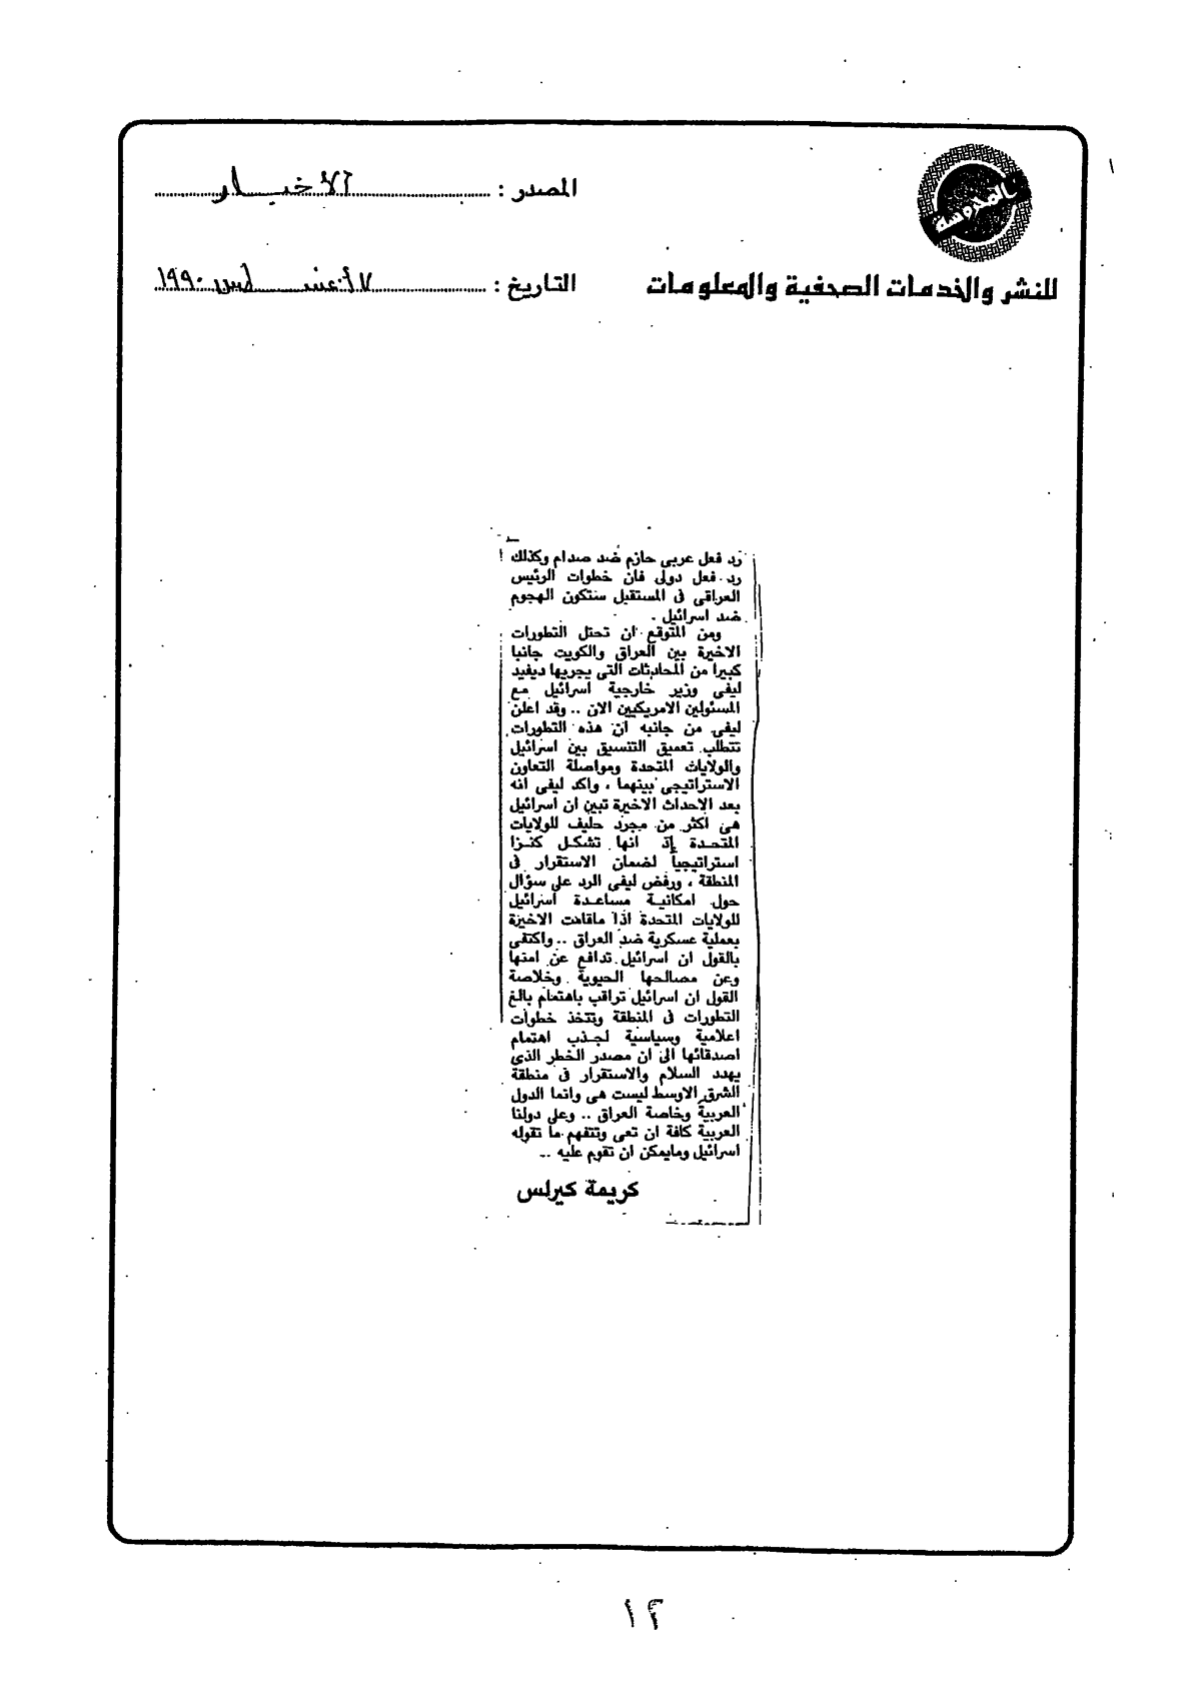 المحروسة
للنشر والخدمات الصحفية والمعلومات
المصدر : الأخبار
التاريخ : ٧ أغسطس ١٩٩٠
رد فعل عربى حازم ضد صدام وكذلك
رد فعل دولى فان خطوات الرئيس
العراقى فى المستقبل ستكون الهجوم
ضد اسرائيل .
ومن المتوقع ان تحتل التطورات
الاخيرة بين العراق والكويت جانبا
كبيرا من المحادثات التى يجريها ديفيد
ليفى وزير خارجية اسرائيل مع
المسئولين الامريكيين الان .. وقد اعلن
ليفى من جانبه ان هذه التطورات
تتطلب تعميق التنسيق بين اسرائيل
والولايات المتحدة ومواصلة التعاون
الاستراتيجى بينهما ، واكد ليفى انه
بعد الاحداث الاخيرة تبين ان اسرائيل
هى اكثر من مجرد حليف للولايات
المتحدة إذ انها تشكل كنزا
استراتيجيا لضمان الاستقرار فى
المنطقة ، ورفض ليفى الرد على سؤال
حول امكانية مساعدة اسرائيل
للولايات المتحدة اذا ماقامت الاخيرة
بعملية عسكرية ضد العراق .. واكتفى
بالقول ان اسرائيل تدافع عن امنها
وعن مصالحها الحيوية وخلاصة
القول ان اسرائيل تراقب باهتمام بالغ
التطورات فى المنطقة وتتخذ خطوات
اعلامية وسياسية لجذب اهتمام
اصدقائها الى ان مصدر الخطر الذى
يهدد السلام والاستقرار فى منطقة
الشرق الاوسط ليست هى وانما الدول
العربية وخاصة العراق .. وعلى دولنا
العربية كافة ان تعى وتتفهم ما تقوله
اسرائيل ومايمكن ان تقوم عليه ..
كريمة كيرلس
١٢